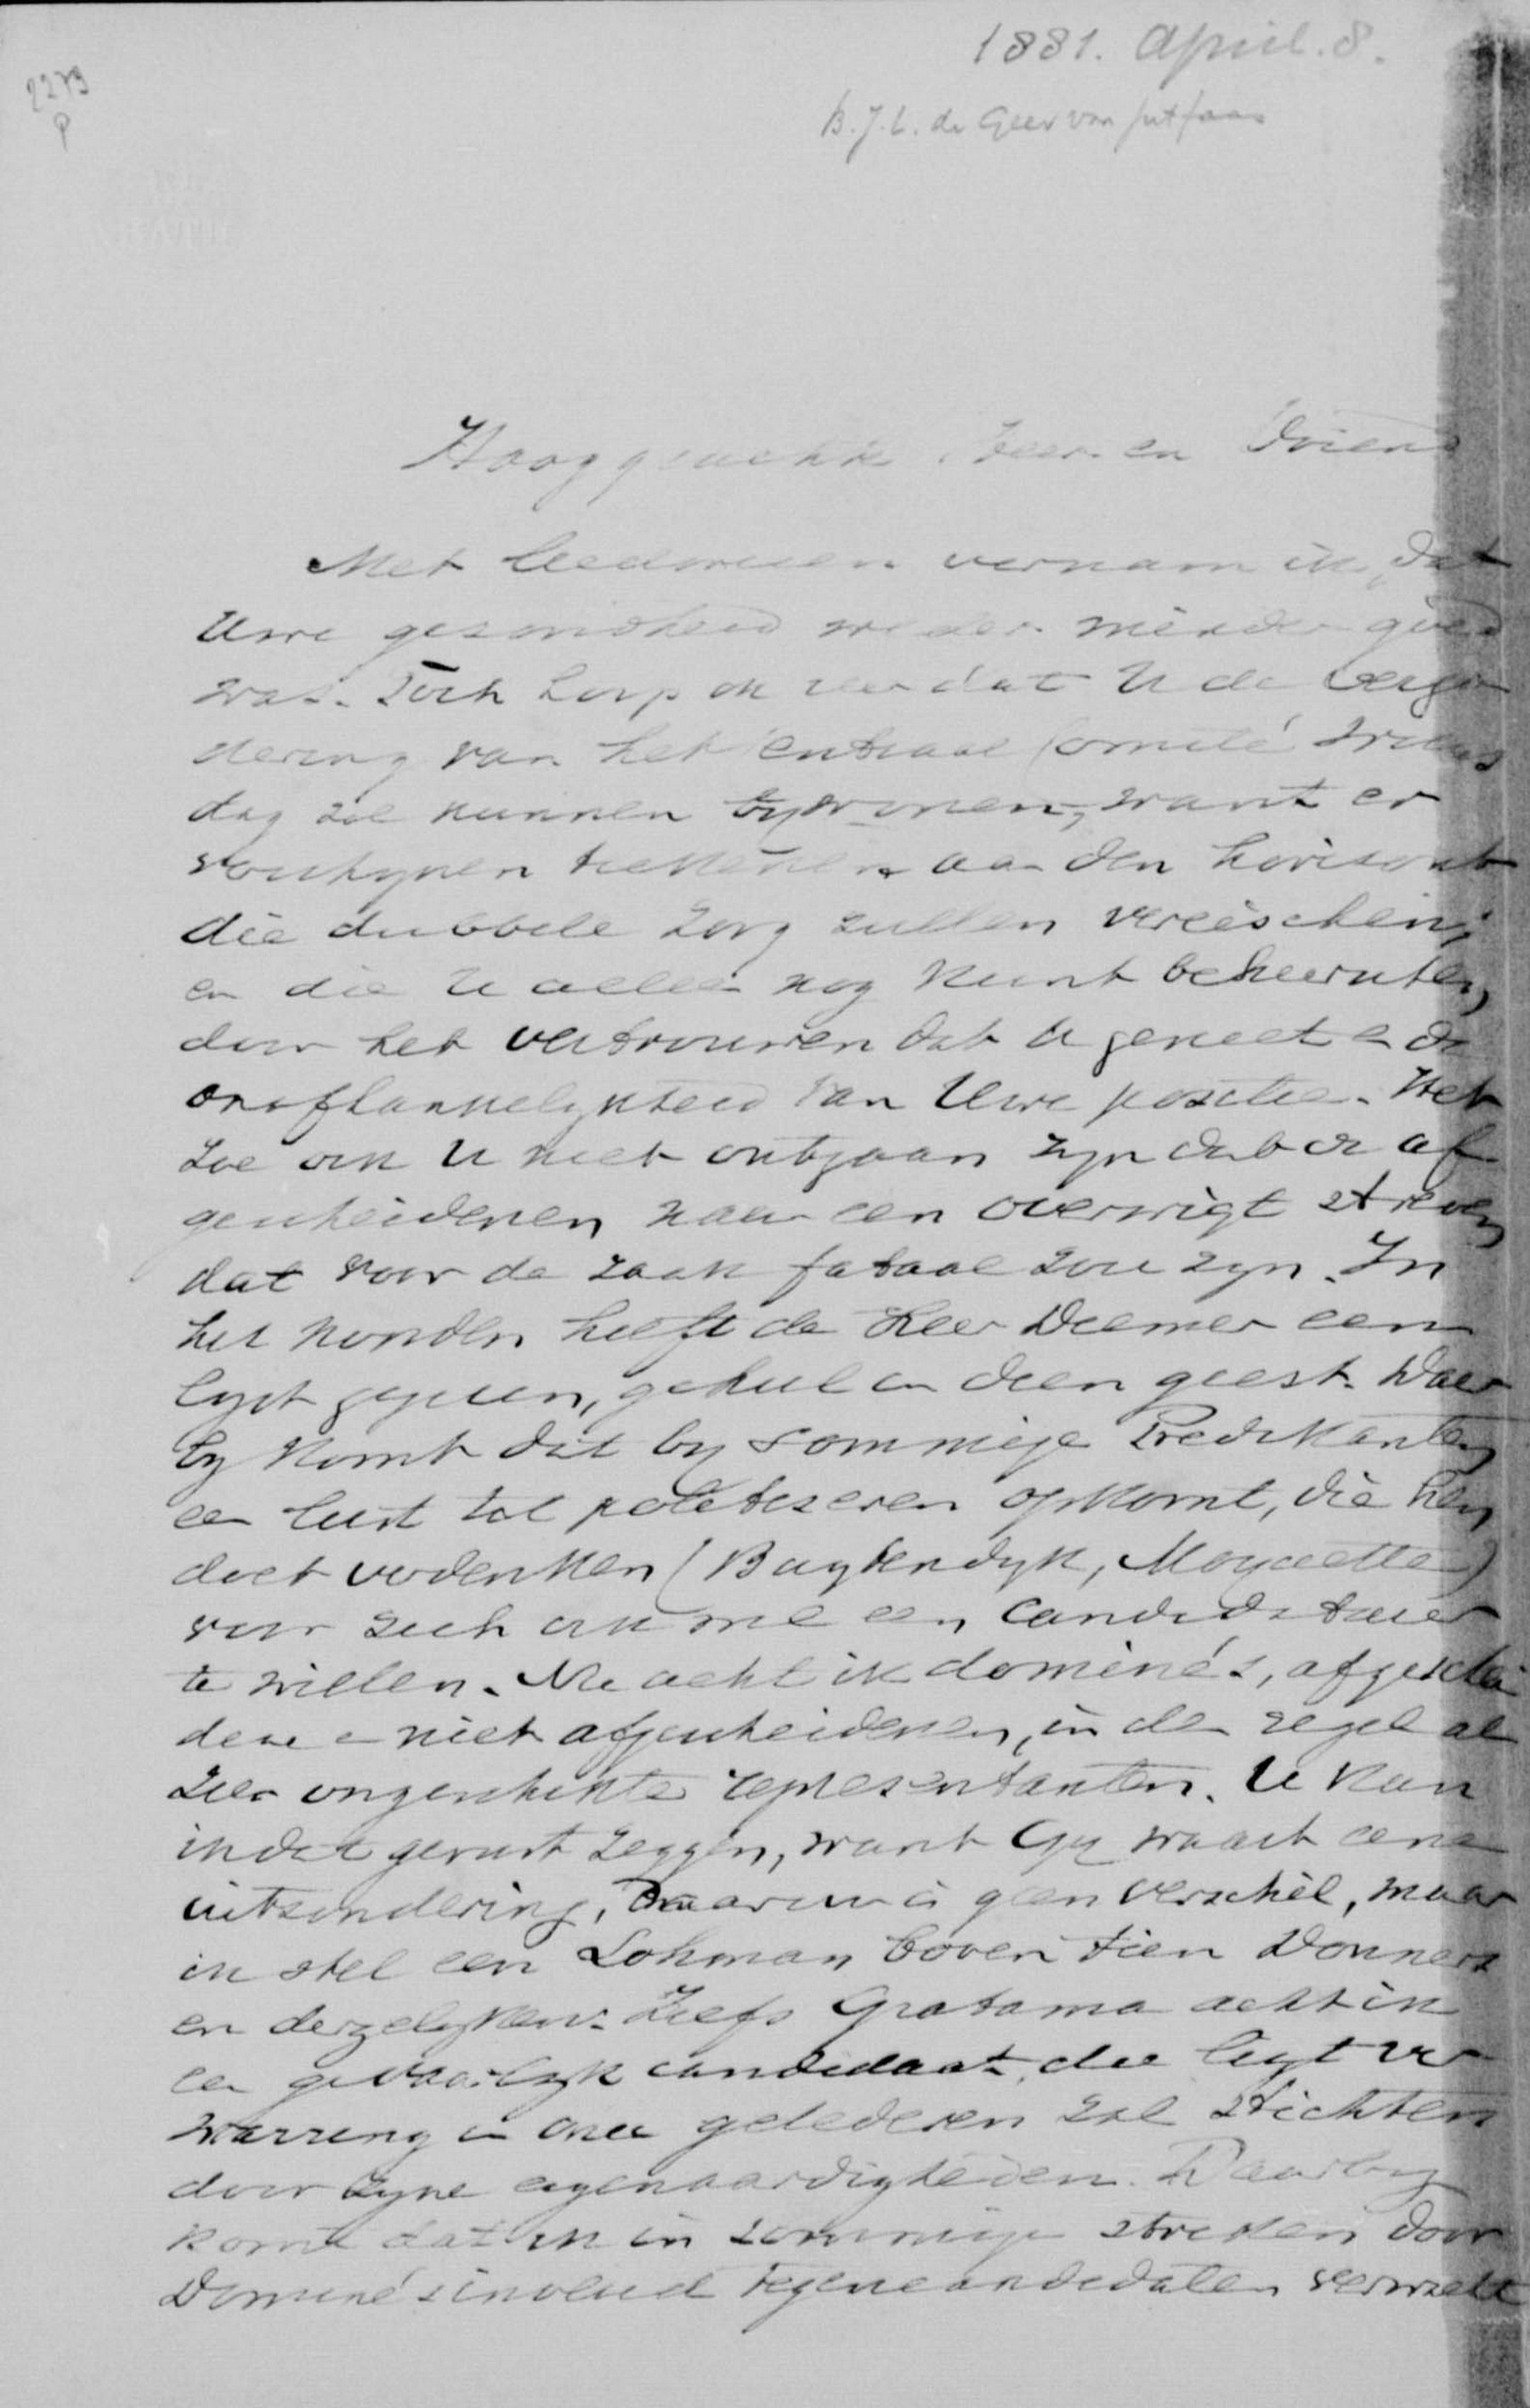 1881. April. 8.
2279
P
B. J. L. de Geer van Jutfaas
Hooggeachte Heer en Vriend
Met leedwezen vernam ik, dat
Uwe gezondheid weder minder goed
was. Toch hoop ik zeer dat U de verga
dering van het Centraal Comité
dag zal kunnen bywonen, want er
verschynen teekenen aan den horisont
die dubbele zorg zullen vereischen,
en die U alleen nog kunt beheerschen,
door het vertrouwen dat U geniet en de
onafhankelykheid van Uwe positie. Het
zal ook U niet ontgaan zyn dat de af
gescheidenen naar een overwigt streven
dat voor de zaak fataal zou zyn. In
het Noorden heeft de Heer Deemer een
lyst gegeven, geheel in dien geest. Daar
by komt dat by sommige Predikanten
een lust tot politiseren opkomt, die hen
doet verdenken (Buytendyk, Moquette)
voor zich ook wel een candidatuur
te willen. Nu acht ik dominé's, afgeschei
dene en niet afgescheidenen, in den regel al
zeer ongeschikte representanten. U kan
ik dat gerust zeggen, want Gy waart eene
uitzondering, daarin is geen verschil, maar
ik stel een Lohman boven tien Donners
en dergelyken. Zelfs Gratama acht ik
een gevaarlyk candidaat, die ligt ver
warring in onze gelederen zal stichten
door zyne eigenaardigheden. Daarby
komt dat ik in sommige streken door
Dominé's invloed tegencandidaten verwacht